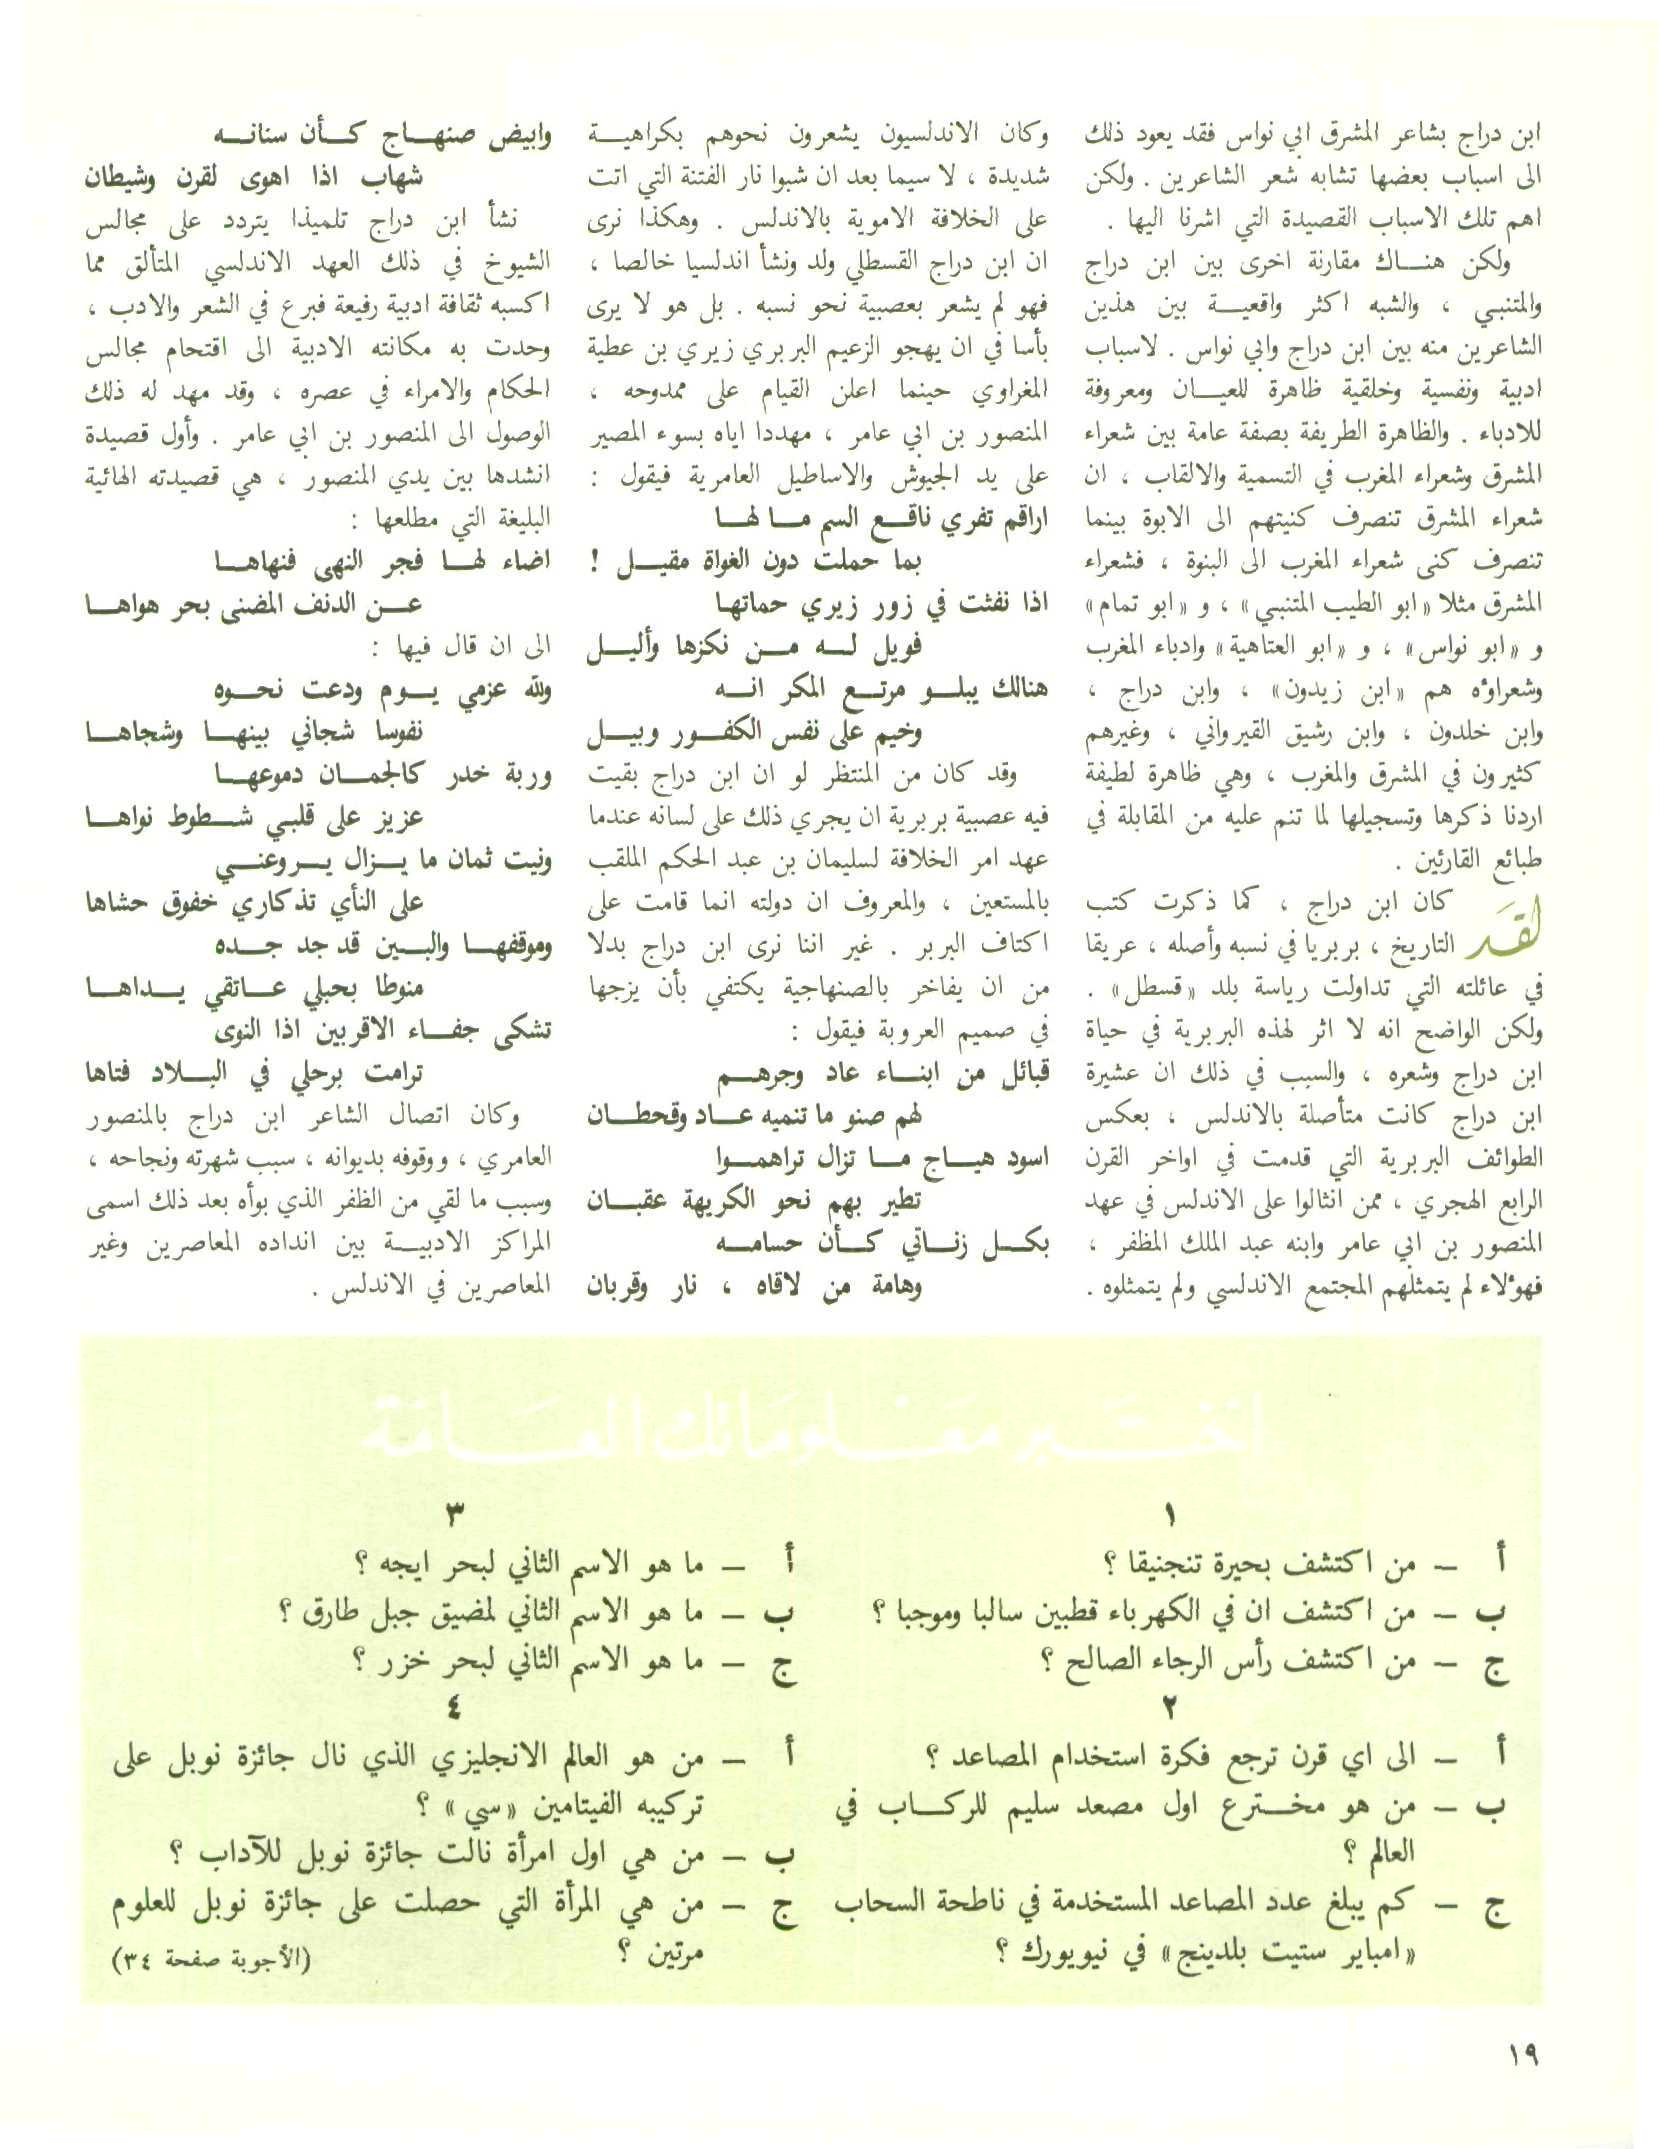 ابن دراج بشاعر المشرق ابي نواس فقد يعود ذلك
الى اسباب بعضها تشابه شعر الشاعرين . ولكن
اهم تلك الاسباب القصيدة التي اشرنا اليها .
ولكن هنـــاك مقارنة اخرى بين ابن دراج
والمتنبي ، والشبه اكثر واقعيـــة بين هذين
الشاعرين منه بين ابن دراج وابي نواس . لاسباب
ادبية ونفسية وخلقية ظاهرة للعيـــان ومعروفة
للادباء . والظاهرة الطريفة بصفة عامة بين شعراء
المشرق وشعراء المغرب في التسمية والالقاب ، ان
شعراء المشرق تنصرف كنيتهم الى الابوة بينما
تنصرف كنى شعراء المغرب الى البنوة ، فشعراء
المشرق مثلا «ابو الطيب المتنبي» ، و «ابو تمام»
و «ابو نواس» ، و «ابو العتاهية» وادباء المغرب
وشعراؤه هم «ابن زيدون» ، وابن دراج ،
وابن خلدون ، وابن رشيق القيرواني ، وغيرهم
كثيرون في المشرق والمغرب ، وهي ظاهرة لطيفة
اردنا ذكرها وتسجيلها لما تنم عليه من المقابلة في
طبائع القارئين .
لقد كان ابن دراج ، كما ذكرت كتب
التاريخ ، بربريا في نسبه وأصله ، عريقا
في عائلته التي تداولت رياسة بلد «قسطل» .
ولكن الواضح انه لا اثر لهذه البربرية في حياة
ابن دراج وشعره ، والسبب في ذلك ان عشيرة
ابن دراج كانت متأصلة بالاندلس ، بعكس
الطوائف البربرية التي قدمت في اواخر القرن
الرابع الهجري ، ممن انثالوا على الاندلس في عهد
المنصور بن ابي عامر وابنه عبد الملك المظفر ،
فهؤلاء لم يتمثلهم المجتمع الاندلسي ولم يتمثلوه .
وكان الاندلسيون يشعرون نحوهم بكراهيـــة
شديدة ، لا سيما بعد ان شبوا نار الفتنة التي اتت
على الخلافة الاموية بالاندلس . وهكذا نرى
ان ابن دراج القسطلي ولد ونشأ اندلسيا خالصا ،
فهو لم يشعر بعصبية نحو نسبه . بل هو لا يرى
بأسا في ان يهجو الزعيم البربري زيري بن عطية
المغراوي حينما اعلن القيام على ممدوحه ،
المنصور بن ابي عامر ، مهددا اياه بسوء المصير
على يد الجيوش والاساطيل العامرية فيقول :
اراقم تفري ناقـــع السم مـــا لهـــا
بما حملت دون الغواة مقيـــل !
اذا نفثت في زور زيري حماتها
فويل لـــه مـــن نكزها وأليـــل
هنالك يبلـــو مرتـــع المكر انـــه
وخيم على نفس الكفـــور وبيـــل
وقد كان من المنتظر لو ان ابن دراج بقيت
فيه عصبية بربرية ان يجري ذلك على لسانه عندما
عهد امر الخلافة لسليمان بن عبد الحكم الملقب
بالمستعين ، والمعروف ان دولته انما قامت على
اكتاف البربر . غير اننا نرى ابن دراج بدلا
من ان يفاخر بالصنهاجية يكتفي بأن يزجها
في صميم العروبة فيقول :
قبائل من ابنـــاء عاد وجرهـــم
لهم صنو ما تنميه عـــاد وقحطـــان
اسود هيـــاج مـــا تزال تراهمـــوا
تطير بهم نحو الكريهة عقبـــان
بكـــل زنـــاتي كـــأن حسامـــه
وهامة من لاقاه ، نار وقربان
وابيض صنهـــاج كـــأن سنانـــه
شهاب اذا اهوى لقرن وشيطان
نشأ ابن دراج تلميذا يتردد على مجالس
الشيوخ في ذلك العهد الاندلسي المتألق مما
اكسبه ثقافة ادبية رفيعة فبرع في الشعر والادب ،
وحدت به مكانته الادبية الى اقتحام مجالس
الحكام والامراء في عصره ، وقد مهد له ذلك
الوصول الى المنصور بن ابي عامر . وأول قصيدة
انشدها بين يدي المنصور ، هي قصيدته الهائية
البليغة التي مطلعها :
اضاء لهـــا فجر النهى فنهاهـــا
عـــن الدنف المضنى بحر هواهـــا
الى ان قال فيها :
ولله عزمي يـــوم ودعت نحـــوه
نفوسا شجاني بينهـــا وشجاهـــا
وربة خدر كالجمـــان دموعهـــا
عزيز على قلبي شـــطوط نواهـــا
ونيت ثمان ما يـــزال يـــروعنـــي
على النأي تذكاري خفوق حشاها
وموقفهـــا والبـــين قد جد جـــده
منوطا بحبلي عـــاتقي يـــداهـــا
تشكى جفـــاء الاقربين اذا النوى
ترامت برحلي في البـــلاد فتاها
وكان اتصال الشاعر ابن دراج بالمنصور
العامري ، ووقوفه بديوانه ، سبب شهرته ونجاحه ،
وسبب ما لقي من الظفر الذي بوأه بعد ذلك اسمى
المراكز الادبيـــة بين انداده المعاصرين وغير
المعاصرين في الاندلس .
اختـــبر معـــلوماتك العـــامة
١
أ – من اكتشف بحيرة تنجنيقا ؟
ب – من اكتشف ان في الكهرباء قطبين سالبا وموجبا ؟
ج – من اكتشف رأس الرجاء الصالح ؟
٢
أ – الى اي قرن ترجع فكرة استخدام المصاعد ؟
ب – من هو مخـــترع اول مصعد سليم للركـــاب في
العالم ؟
ج – كم يبلغ عدد المصاعد المستخدمة في ناطحة السحاب
«امباير ستيت بلدينج» في نيويورك ؟
٣
أ – ما هو الاسم الثاني لبحر ايجه ؟
ب – ما هو الاسم الثاني لمضيق جبل طارق ؟
ج – ما هو الاسم الثاني لبحر خزر ؟
٤
أ – من هو العالم الانجليزي الذي نال جائزة نوبل على
تركيبه الفيتامين «سي» ؟
ب – من هي اول امرأة نالت جائزة نوبل للآداب ؟
ج – من هي المرأة التي حصلت على جائزة نوبل للعلوم
مرتين ؟
(الأجوبة صفحة ٣٤)
١٩